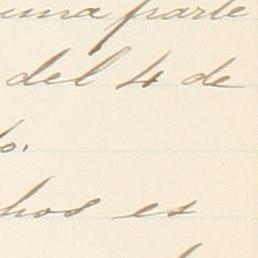 una parte
del 4 de
o.
hos es